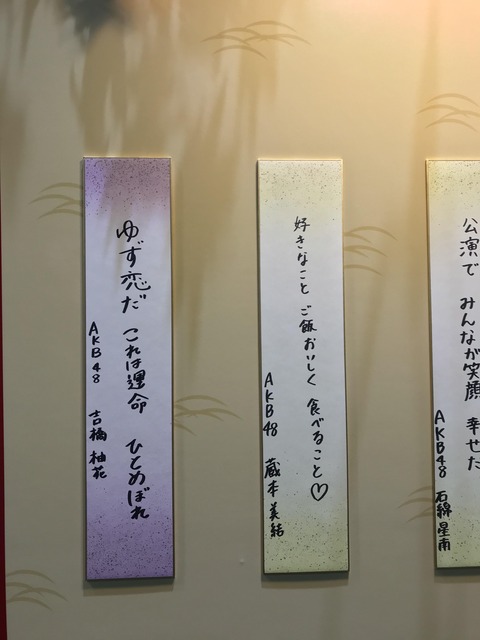 ゆず恋だ これは運命 ひとめぼれ
AKB48 吉橋 柚花
好きなこと ご飯おいしく 食べること♡
AKB48 蔵本 美結
公演で みんなが笑顔 幸せだ
AKB48 石綿 星南